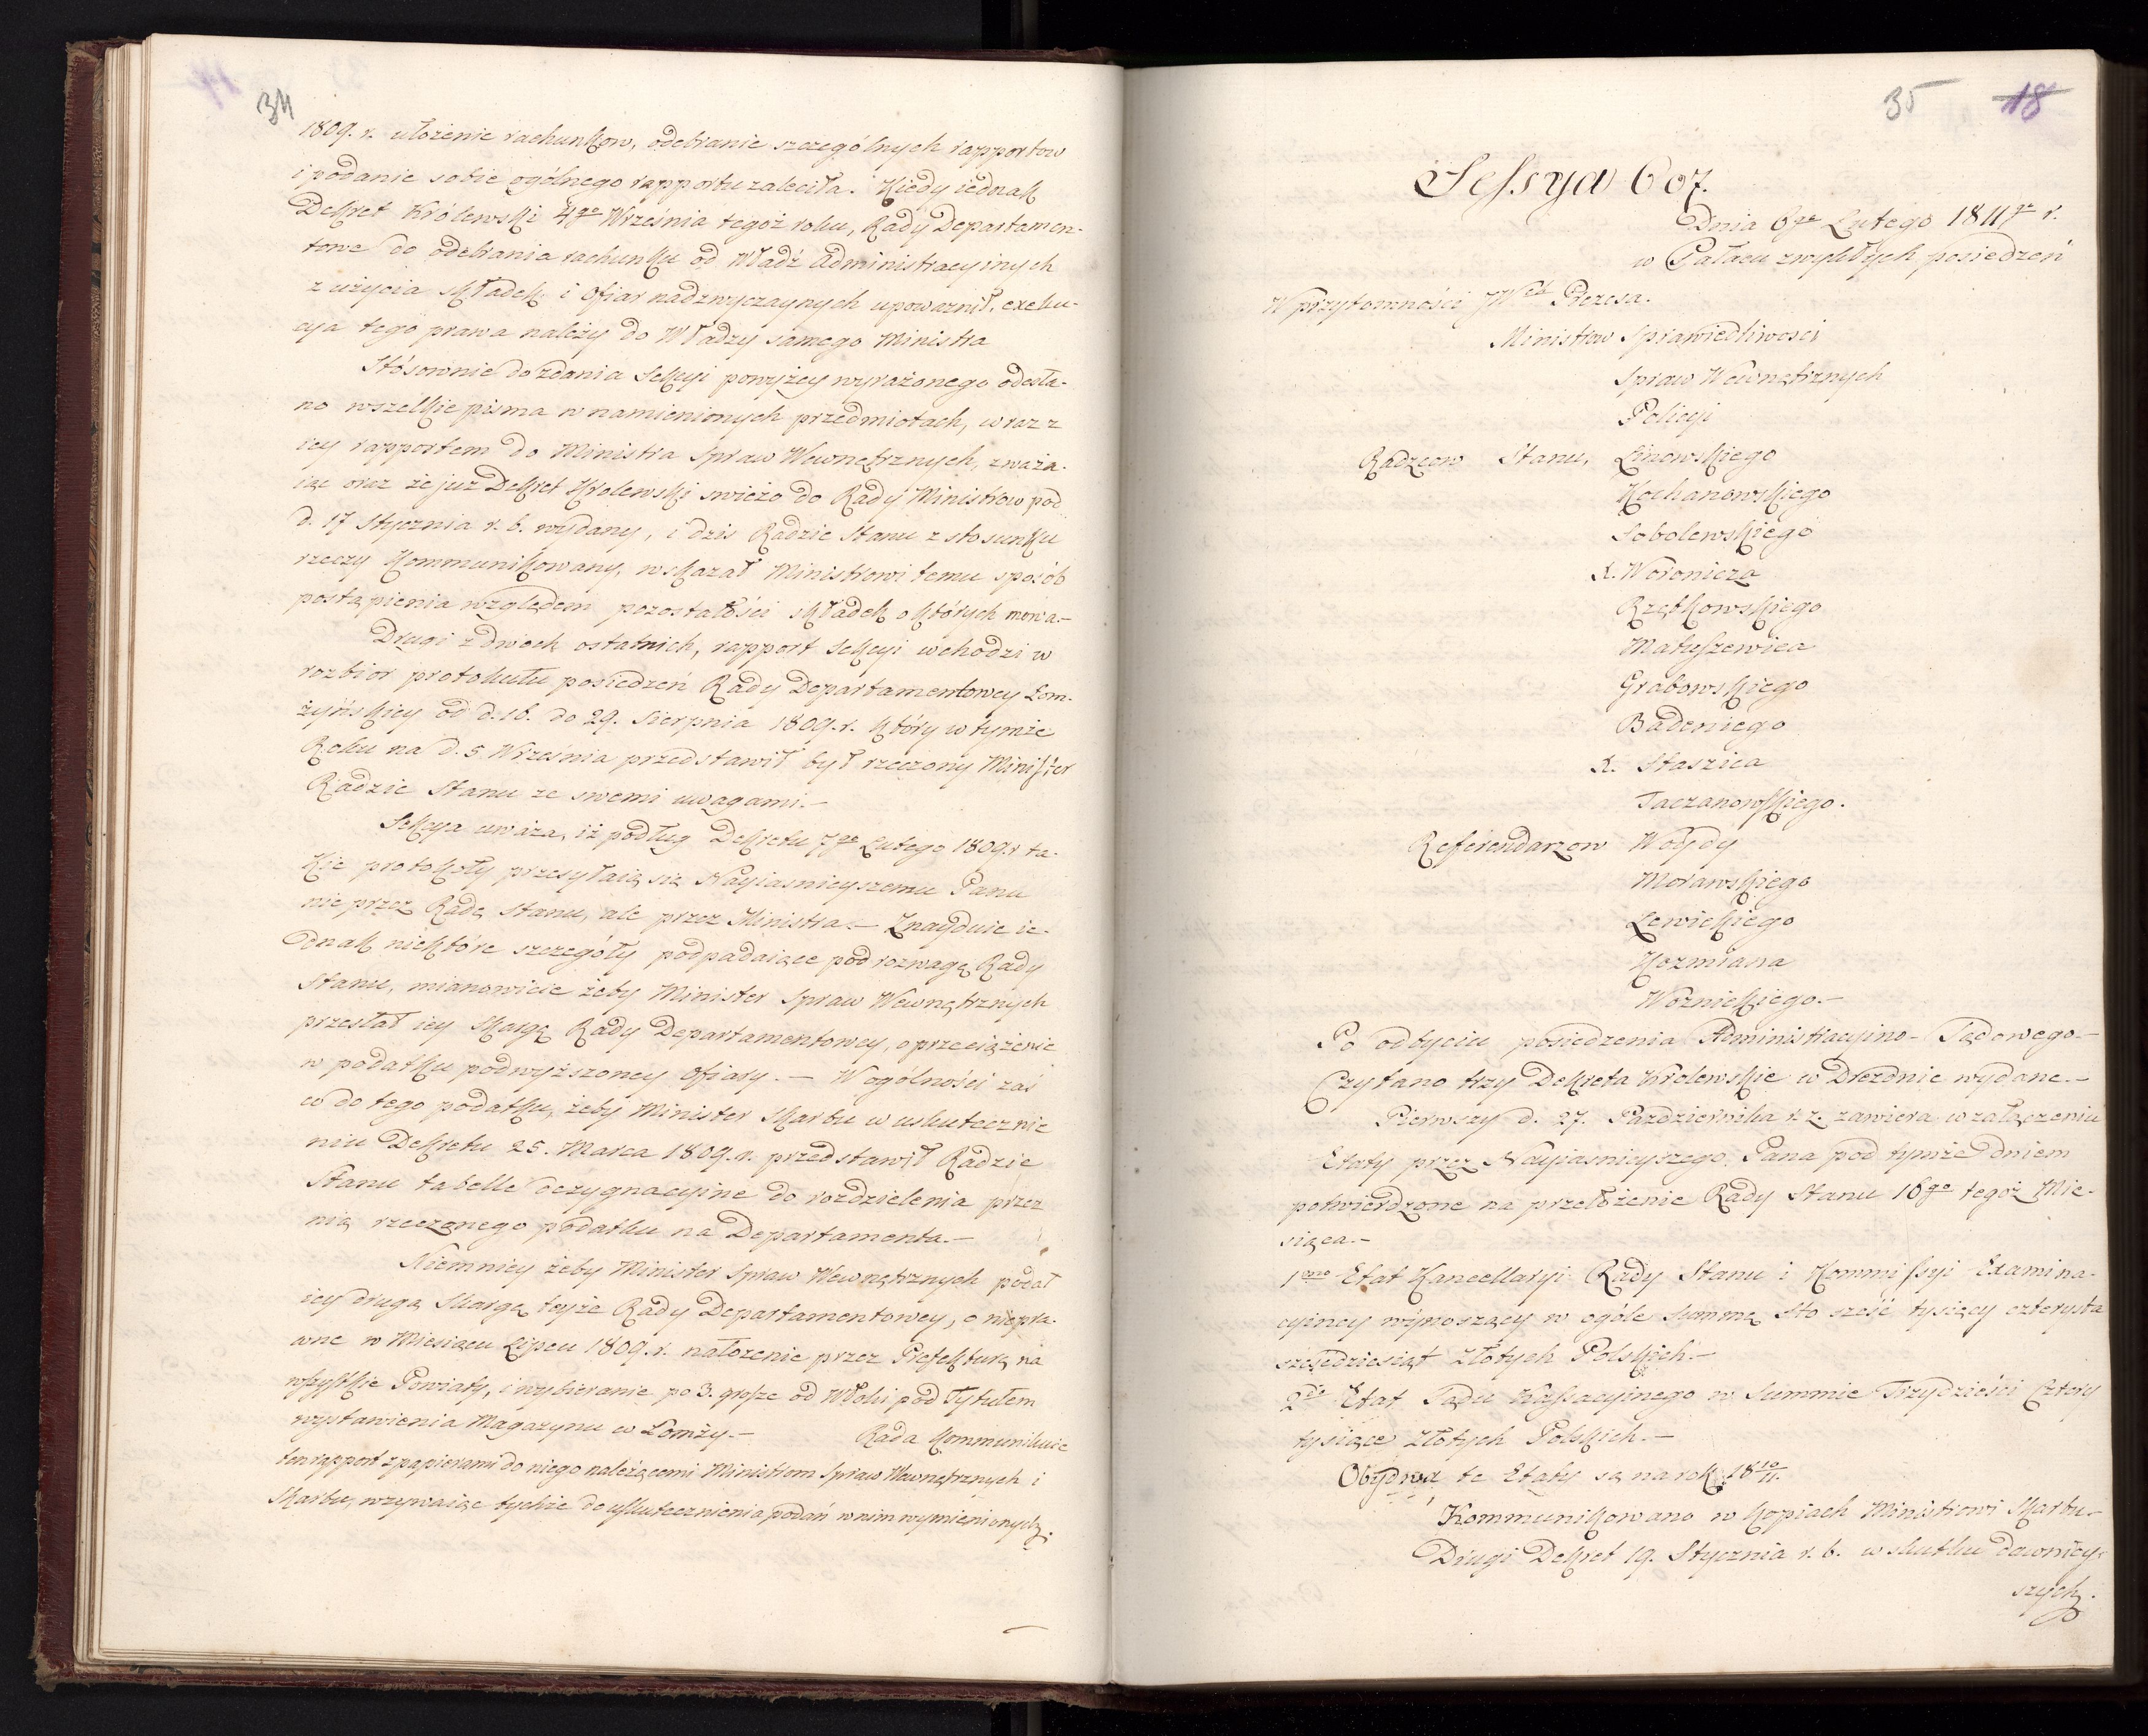 34
1809. r. ułożenie rachunkow, odebranie szczególnych rapportow
i podanie sobie ogólnego rapportu zaleciła. Kiedy iednak
Dekret Królewski 4go Września tegoż roku, Rady Departamen-
towe do odebrania rachunku od Władz Administracyinych
z użycia składek i Ofiar nadzwyczaynych upoważnił, exeku-
cya tego prawa należy do Władzy samego Ministra
Stósownie do zdania Sekcyi powyżey wyrażonego odesła-
no wszelkie pisma w namienionych przedmiotach, wraz z
iey rapportem do Ministra Spraw Wewnętrznych, zważa-
iąc oraz że już Dekret Krolewski swieżo do Rady Ministrow pod
d. 17 Stycznia r. b. wydany, i dzis Radzie Stanu z stosunku
rzeczy kommunikowany, wskazał Ministrowi temu sposób
postąpienia względem pozostałości składek o których mowa.-
Drugi z dwoch ostatnich, rapport Sekcyi wchodzi w
rozbior protokułu posiedzeń Rady Departamentowey Łom-
żyńskiey od d. 16. do 29. Sierpnia 1809. r. który w tymże
Roku na d. 5 Września przedstawił był rzeczony Minister
Radzie Stanu ze swemi uwagami.-
Sekcya uważa, iż podług Dekretu 7go Lutego 1809. r ta-
kie protokóły przesyłaią się Nayiasnieyszemu Panu
nie przez Radę Stanu, ale przez Ministra.- Znayduie ie-
dnak niektóre szczegóły podpadaiące pod rozwagę Rady
Stanu, mianowicie żeby Minister Spraw Wewnętrznych
przesłał iey skargę Rady Departamentowey, o przeciążenie
w podatku podwyższoney Ofiary.- W ogólności zaś
co do tego podatku, żeby Minister Skarbu w uskutecznie
niu Dekretu 25. Marca 1809. r. przedstawił Radzie
Stanu tabelle dezygnacyine do rozdzielenia przez
nią rzeczonego podatku na Departamenta.-
Niemniey żeby Minister Spraw Wewnętrznych podał
iey drugą Skargę teyże Rady Departamentowey, o niepra-
wne w Miesiącu Lipcu 1809. r. nałożenie przez Prefekturę na
wszystkie Powiaty, i wybieranie po 3. grosze od Włoki pod Tytułem
wystawienia Magazynu w Łomży.- Rada kommunikuie
ten rapport z papierami do niego należącemi Ministrom Spraw Wewnętrznych i
Skarbu, wzywaiąc tychże do uskutecznienia podań w nim wymienionych.
35 18
Sessya 607.
Dnia 6go Lutego 1811go r.
w Pałacu zwykłych posiedzeń
W przytomności JWch Prezesa.
Ministrow Sprawiedliwosci
Spraw Wewnętrznych
Policyi
Radzcow Stanu, Linowskiego
Kochanowskiego
Sobolewskiego
X. Woronicza
Rzętkowskiego
Matuszewica
Grabowskiego
Badeniego
X. Staszica
Taczanowskiego.
Referendarzow Woydy
Morawskiego
Lewickiego
Kozmiana
Woznickiego.-
Po odbyciu posiedzenia Administracyino-Sądowego-
Czytano trzy Dekreta Krolewskie w Dreznie wydane.-
Pierwszy d. 27. Pazdziernika r. z. zawiera w załączeniu
Etaty przez Nayiasnieyszego Pana pod tymże dniem
potwierdzone na przełożenie Rady Stanu 16go tegoż Mie-
siąca.-
1mo Etat Kancellaryi Rady Stanu i Kommissyi Examina-
cyiney wynoszący w ogóle Summę Sto szesć tysięcy czterysta
szescdziesiąt Złotych Polskich.-
2do Etat Sądu Kassacyinego w Summie Trzydzieści Cztery
tysiące Złotych Polskich.-
Obydwa te Etaty są na rok 18 10/11.
Kommunikowano w kopiach Ministrowi Skarbu-
Drugi Dekret 19. Stycznia r. b. w skutku dawniey-
szych.